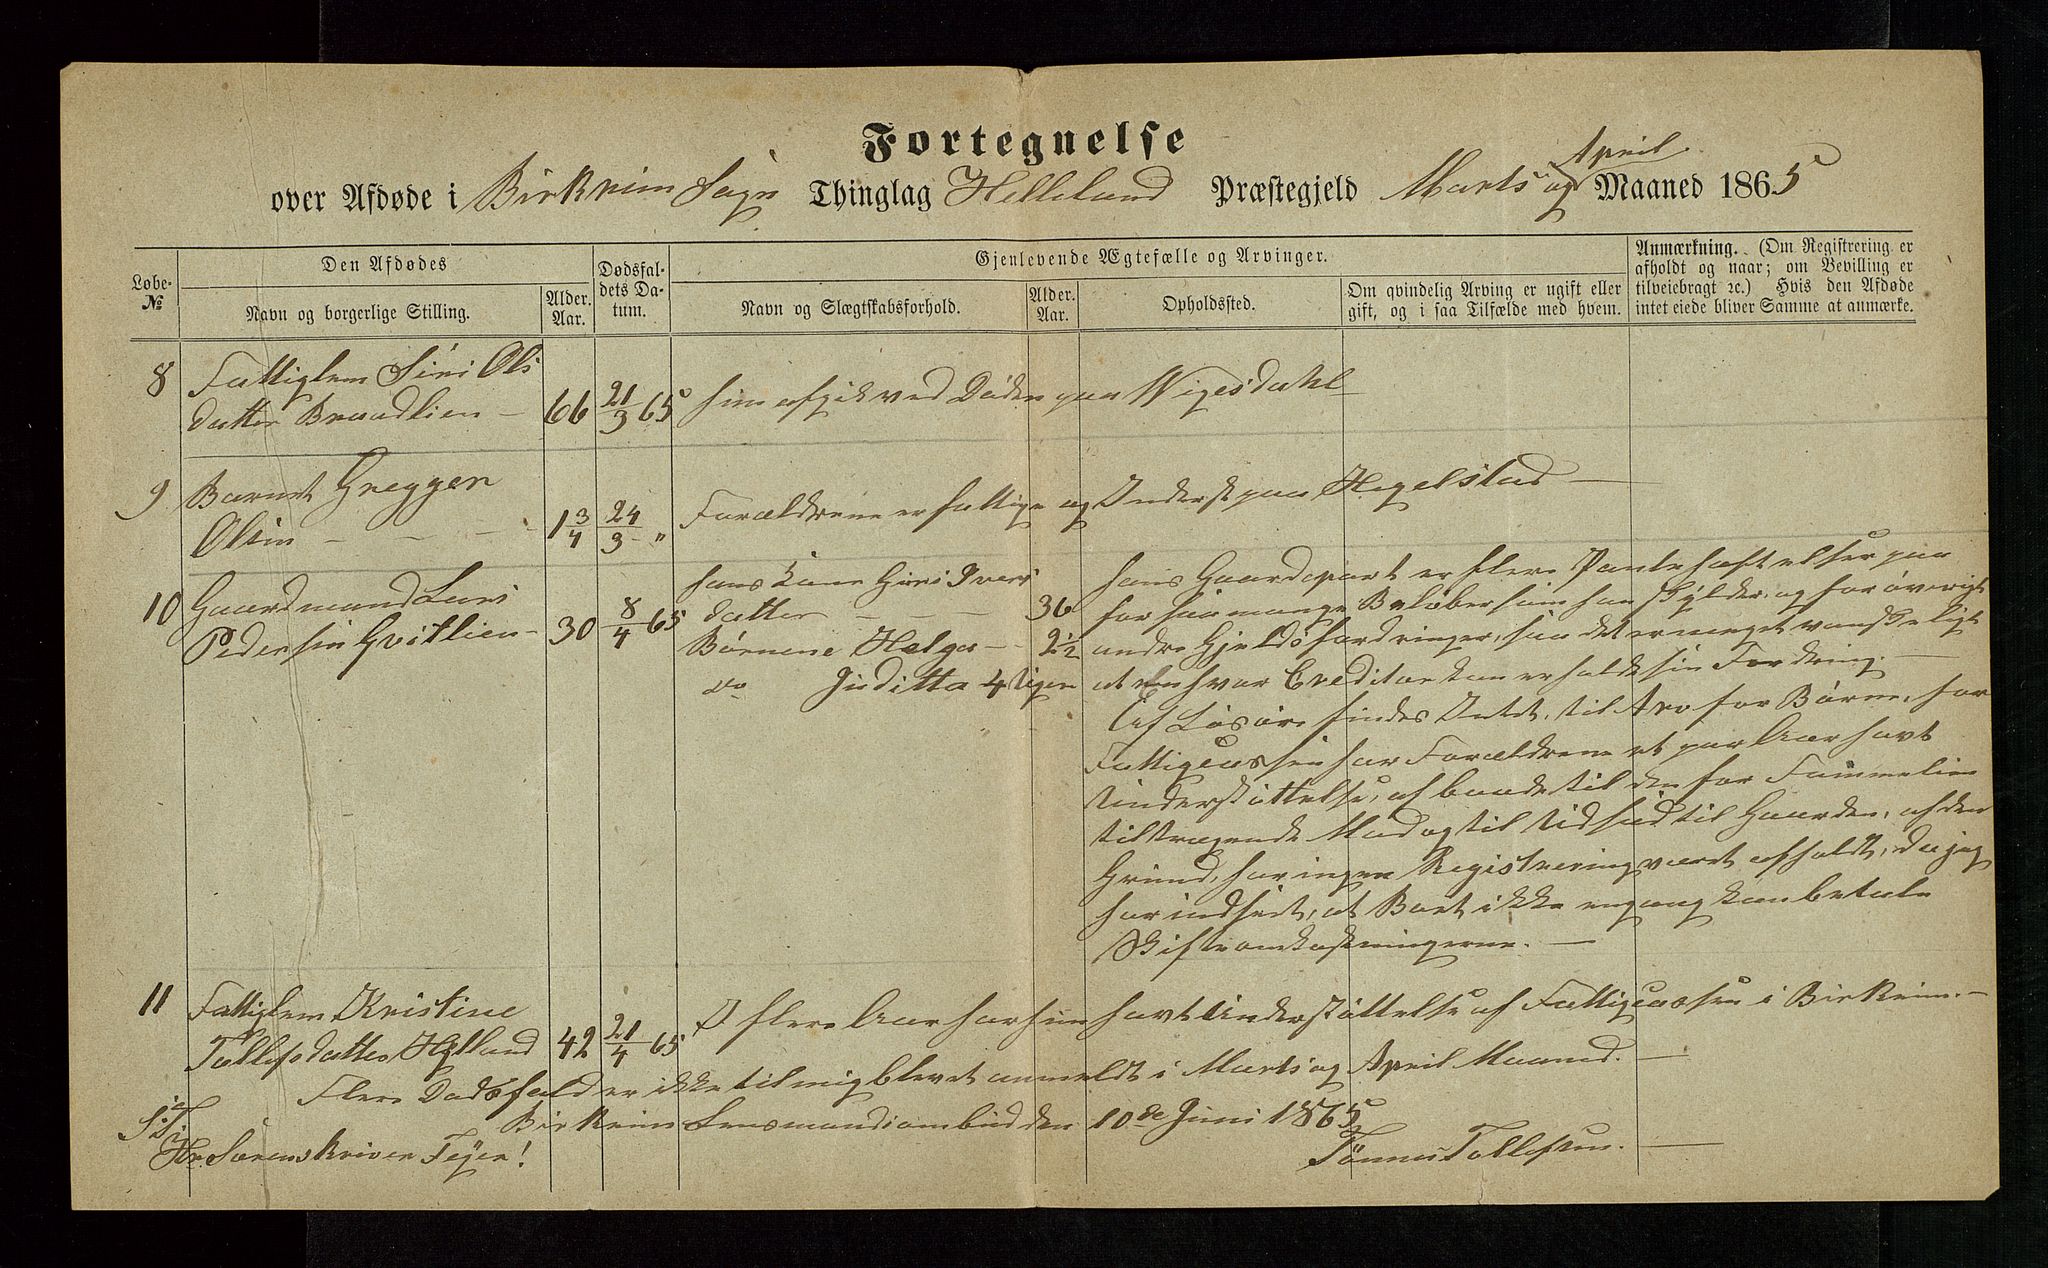 Fortegnelse
over Afdøde i Birkrim Sogn Thinglag Helleland Præstegjeld Marts og April Maaned 1865
Løbe-№
Den Afdødes
Navn og borgerlige Stilling.
Alder. Aar.
Dødsfaldets Datum.
Gjenlevende Ægtefælle og Arvinger.
Navn og Slægtskabsforhold.
Alder. Aar.
Opholdssted.
Om qvindelig Arving er ugift eller gift, og i saa Tilfælde med hvem.
Anmærkning. (Om Registrering er afholdt og naar; om Bevilling er tilveiebragt ꝛc.) Hvis den Afdøde intet eiede bliver Samme at anmærke.
8 Fattiglem Siri Ols
datter Braadlien – 66 21/3 65 hun afgik ved Døden paa Wigesdahl
9 Barnet Gregger
Olsen – – – 1 3/4 24/3 – " Forældrene er fattige og Inderst paa Hegelstad –
10 Gaardmand Lars
Pedersen Gvitlien – 30 8/4 65
hans Kone Guri Ivers
datter – – – 36
Børnene Helga – – 2½
do Juditta 4 Uger
hans Gaardepart er flere Pantehæftelser paa
for saa mange Beløber som han skylder, og for øvrigt
andre Gjeldsfordringer, saa det er meget vanskeligt
at enhver Creditor kan erholde sin Fordring. –
Af Løsøre findes Intet, til Arv for Børne, for
Fattigcassen har Forældrene et par Aar havt
Understøttelse, af baade til den for Fammelien
tiltrægende Mad og til Udsæd til Gaarden, af den
Grund, har ingen Registrering været afholdt, da jeg
har indseet, at Boet ikke engang kan betale
Skifteomkostningerne. –
11 Fattiglem Kristine
Tollefsdatter Hetland 42 21/4 65 I flere Aar har hun havt Understøttelse af Fattigcassen i Birkrim. –
Flere Dødsfald er ikke til mig blevet anmeldt i Marts og April Maaned. –
Birkrim Lensmandsombud den 10de Juni 1865
S. T.
Hr. Sorenskriver Feyer!
Tønnes Tollefsen. –